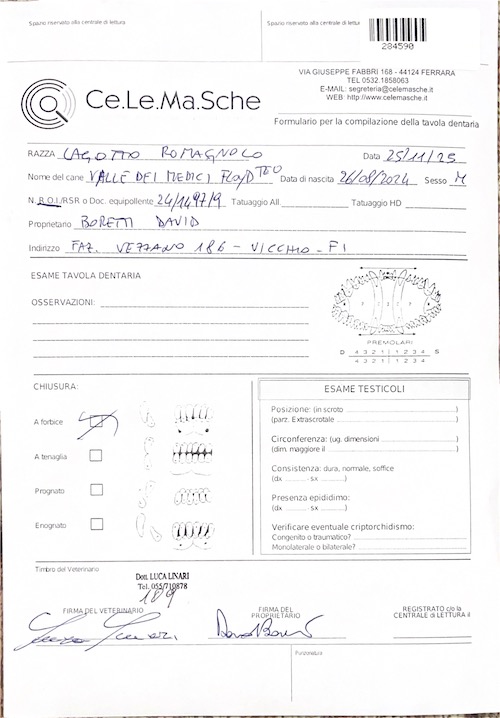 Spazio riservato alla centrale di lettura
Spazio riservato alla centrale di lettur
284590
Ce.Le.Ma.Sche
VIA GIUSEPPE FABBRI 168 - 44124 FERRARA
TEL 0532.1858063
E-MAIL: segreteria@celemasche.it
WEB: http://www.celemasche.it
Formulario per la compilazione della tavola dentaria
RAZZA LAGOTTO ROMAGNOLO Data 25/11/25
Nome del cane VALLE DEI MEDICI FLOYD TEO Data di nascita 26/08/2024 Sesso M
N. R.O.I/RSR o Doc. equipollente 24/149719 Tatuaggio All Tatuaggio HD
Proprietario BORETTI DAVID
Indirizzo FAZ. VEZZANO 186 - VICCHIO - FI
ESAME TAVOLA DENTARIA
OSSERVAZIONI:
PREMOLARI
D 4 3 2 1 1 2 3 4 S
4 3 2 1 1 2 3 4
CHIUSURA:
A forbice
A tenaglia
Prognato
Enognato
ESAME TESTICOLI
Posizione: (in scroto )
(parz. Extrascrotale )
Circonferenza: (ug. dimensioni )
(dim. maggiore il )
Consistenza: dura, normale, soffice
(dx - sx )
Presenza epididimo:
(dx - sx )
Verificare eventuale criptorchidismo:
Congenito o traumatico?
Monolaterale o bilaterale?
Timbro del Veterinario
Dott. LUCA LINARI
Tel. 055/710878
189
FIRMA DEL VETERINARIO
FIRMA DEL
PROPRIETARIO
REGISTRATO c/o la
CENTRALE di LETTURA il
Punzonatura